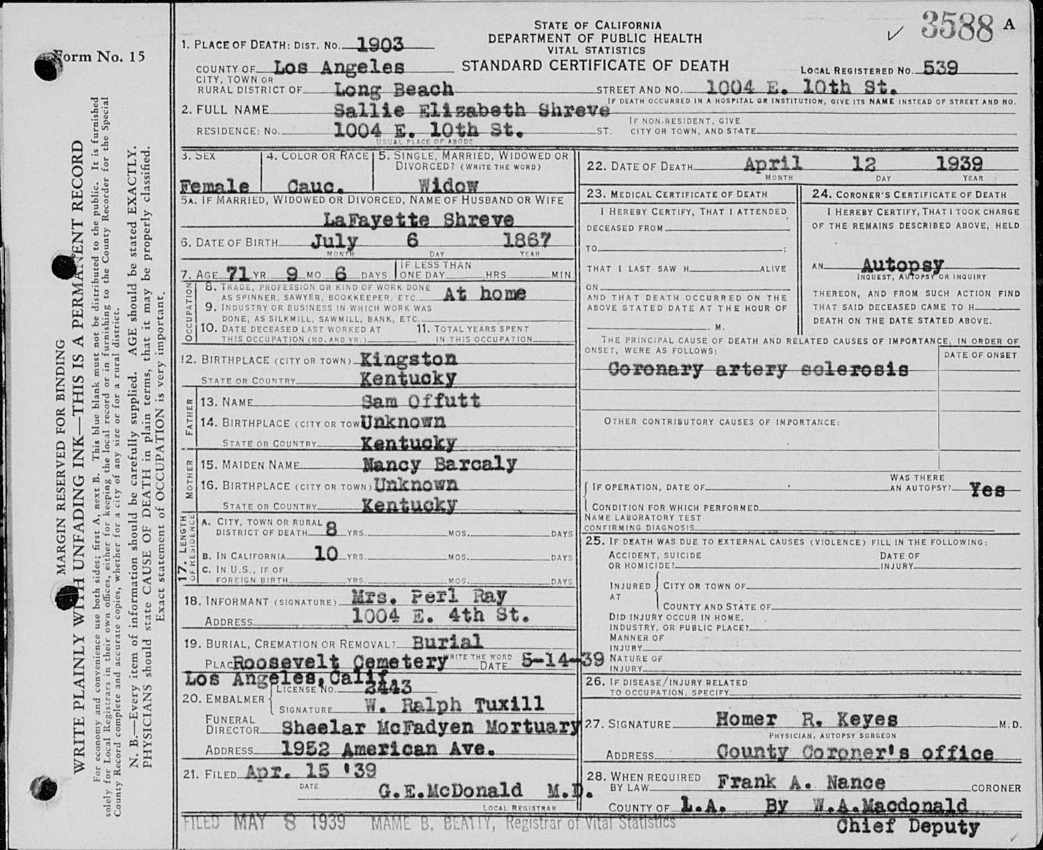 STATE OF CALIFORNIA
DEPARTMENT OF PUBLIC HEALTH
VITAL STATISTICS
STANDARD CERTIFICATE OF DEATH
✓ 3588 A
Form No. 15
1. PLACE OF DEATH: DIST. NO. 1903
COUNTY OF Los Angeles
LOCAL REGISTERED NO. 539
CITY, TOWN OR
RURAL DISTRICT OF Long Beach STREET AND NO. 1004 E. 10th St.
IF DEATH OCCURRED IN A HOSPITAL OR INSTITUTION, GIVE ITS NAME INSTEAD OF STREET AND NO.
2. FULL NAME Sallie Elizabeth Shreve
RESIDENCE: NO. 1004 E. 10th St. ST. IF NON-RESIDENT, GIVE CITY OR TOWN, AND STATE
USUAL PLACE OF ABODE
3. SEX Female
4. COLOR OR RACE Cauc.
5. SINGLE, MARRIED, WIDOWED OR DIVORCED? (WRITE THE WORD) Widow
5A. IF MARRIED, WIDOWED OR DIVORCED, NAME OF HUSBAND OR WIFE
LaFayette Shreve
6. DATE OF BIRTH July 6 1867
MONTH DAY YEAR
7. AGE 71 YR 9 MO 6 DAYS IF LESS THAN ONE DAY HRS MIN
OCCUPATION
8. TRADE, PROFESSION OR KIND OF WORK DONE
AS SPINNER, SAWYER, BOOKKEEPER, ETC. At home
9. INDUSTRY OR BUSINESS IN WHICH WORK WAS
DONE, AS SILKMILL, SAWMILL, BANK, ETC.
10. DATE DECEASED LAST WORKED AT THIS OCCUPATION (MO. AND YR.)
11. TOTAL YEARS SPENT IN THIS OCCUPATION
12. BIRTHPLACE (CITY OR TOWN) Kingston
STATE OR COUNTRY Kentucky
FATHER
13. NAME Sam Offutt
14. BIRTHPLACE (CITY OR TOW Unknown
STATE OR COUNTRY Kentucky
MOTHER
15. MAIDEN NAME Nancy Barcaly
16. BIRTHPLACE (CITY OR TOWN) Unknown
STATE OR COUNTRY Kentucky
17. LENGTH OF RESIDENCE
A. CITY, TOWN OR RURAL
DISTRICT OF DEATH 8 YRS. MOS. DAYS
B. IN CALIFORNIA 10 YRS. MOS. DAYS
C. IN U.S., IF OF
FOREIGN BIRTH YRS. MOS. DAYS
18. INFORMANT (SIGNATURE) Mrs. Perl Ray
ADDRESS 1004 E. 4th St.
19. BURIAL, CREMATION OR REMOVAL? Burial
WRITE THE WORD
PLAC Roosevelt Cemetery DATE 5-14-39
Los Angeles, Calif.
20. EMBALMER LICENSE NO. 3443
SIGNATURE W. Ralph Tuxill
FUNERAL
DIRECTOR Sheelar McFadyen Mortuary
ADDRESS 1952 American Ave.
21. FILED Apr. 15 '39
DATE
G.E.McDonald M.D.
LOCAL REGISTRAR
FILED MAY 8 1939 MAME B. BEATTY, Registrar of Vital Statistics
22. DATE OF DEATH April 12 1939
MONTH DAY YEAR
23. MEDICAL CERTIFICATE OF DEATH
I HEREBY CERTIFY, THAT I ATTENDED
DECEASED FROM
TO ;
THAT I LAST SAW H ALIVE
ON
AND THAT DEATH OCCURRED ON THE
ABOVE STATED DATE AT THE HOUR OF
M.
24. CORONER'S CERTIFICATE OF DEATH
I HEREBY CERTIFY, THAT I TOOK CHARGE
OF THE REMAINS DESCRIBED ABOVE, HELD
AN Autopsy
INQUEST, AUTOPSY OR INQUIRY
THEREON, AND FROM SUCH ACTION FIND
THAT SAID DECEASED CAME TO H
DEATH ON THE DATE STATED ABOVE.
THE PRINCIPAL CAUSE OF DEATH AND RELATED CAUSES OF IMPORTANCE, IN ORDER OF
ONSET, WERE AS FOLLOWS:
DATE OF ONSET
Coronary artery sclerosis
OTHER CONTRIBUTORY CAUSES OF IMPORTANCE:
IF OPERATION, DATE OF WAS THERE AN AUTOPSY? Yes
CONDITION FOR WHICH PERFORMED
NAME LABORATORY TEST
CONFIRMING DIAGNOSIS
25. IF DEATH WAS DUE TO EXTERNAL CAUSES (VIOLENCE) FILL IN THE FOLLOWING:
ACCIDENT, SUICIDE
OR HOMICIDE? DATE OF INJURY
INJURED AT CITY OR TOWN OF
COUNTY AND STATE OF
DID INJURY OCCUR IN HOME,
INDUSTRY, OR PUBLIC PLACE?
MANNER OF
INJURY
NATURE OF
INJURY
26. IF DISEASE/INJURY RELATED
TO OCCUPATION, SPECIFY
27. SIGNATURE Homer R. Keyes M.D.
PHYSICIAN, AUTOPSY SURGEON
ADDRESS County Coroner's office
28. WHEN REQUIRED
BY LAW Frank A. Nance CORONER
COUNTY OF L.A. By W.A.Macdonald
Chief Deputy
MARGIN RESERVED FOR BINDING
WRITE PLAINLY WITH UNFADING INK—THIS IS A PERMANENT RECORD
For economy and convenience use both sides; first A, next B. This blank must not be distributed to the public. It is furnished
solely for Local Registrars in their own offices, either for keeping the local record or in furnishing to the County Recorder for the Special
County Record complete and accurate copies, whether for a city of any size or for a rural district.
N. B.—Every item of information should be carefully supplied. AGE should be stated EXACTLY.
PHYSICIANS should state CAUSE OF DEATH in plain terms, that it may be properly classified.
Exact statement of OCCUPATION is very important.